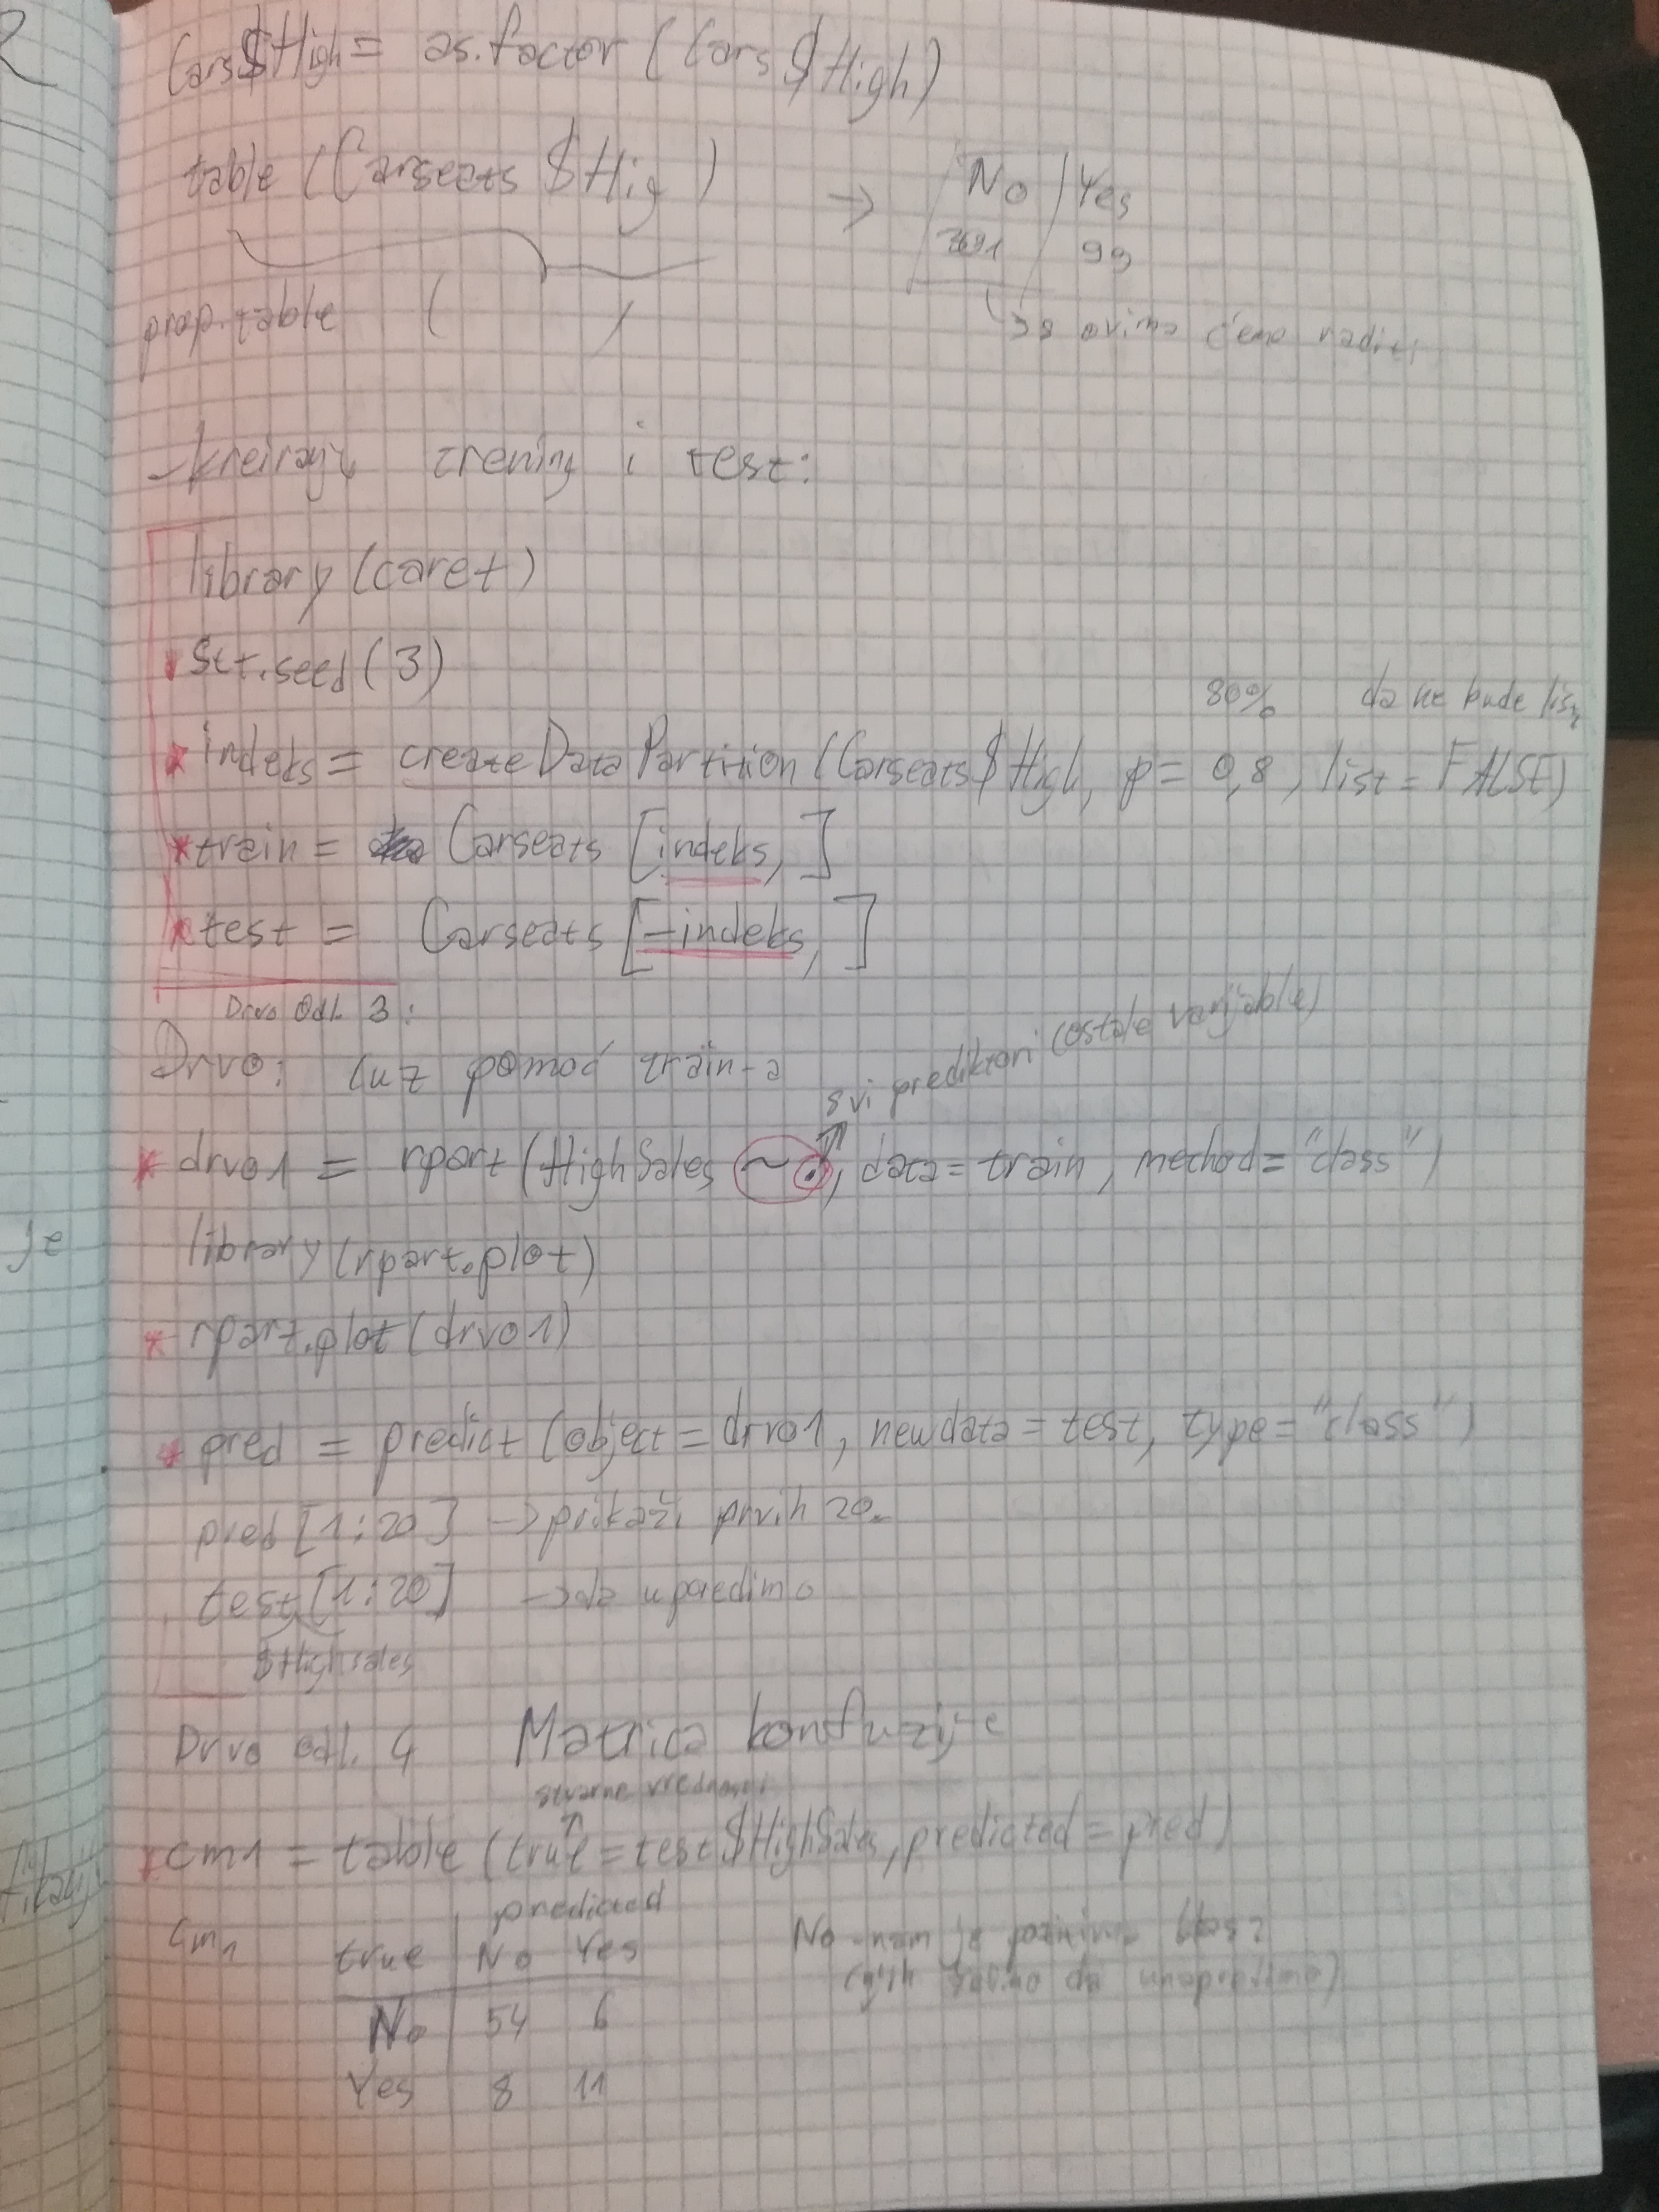 Cars$High = as.factor (Cars $ High)
table (Carseats $ Hig ) → No | Yes
99
prop.table ( )
↳ sa ovima ćemo raditi
- kreiraj trening i test:
library (caret)
set.seed (3)
80% da ne bude lista
* indeks = createDataPartition (Carseats $ High, p = 0,8, list = FALSE)
* train = Carseats [indeks, ]
* test = Carseats [-indeks, ]
Drvo odl. 3:
Drvo: (uz pomoć train-a
svi prediktori (ostale varijable)
* drvo1 = rpart (HighSales ~ ., data = train, method = "class")
library (rpart.plot)
* rpart.plot (drvo1)
* pred = predict (object = drvo1, newdata = test, type = "class")
pred [1:20] → prikaži prvih 20
test [1:20] → da uporedimo
$Highsales
Drvo odl. 4 Matrica konfuzije
stvarne vrednosti
* cm1 = table (true = test $HighSales, predicted = pred)
predicted
cm1 true | No Yes
No 54 6
Yes 8 11
No nam je pozitivna klasa